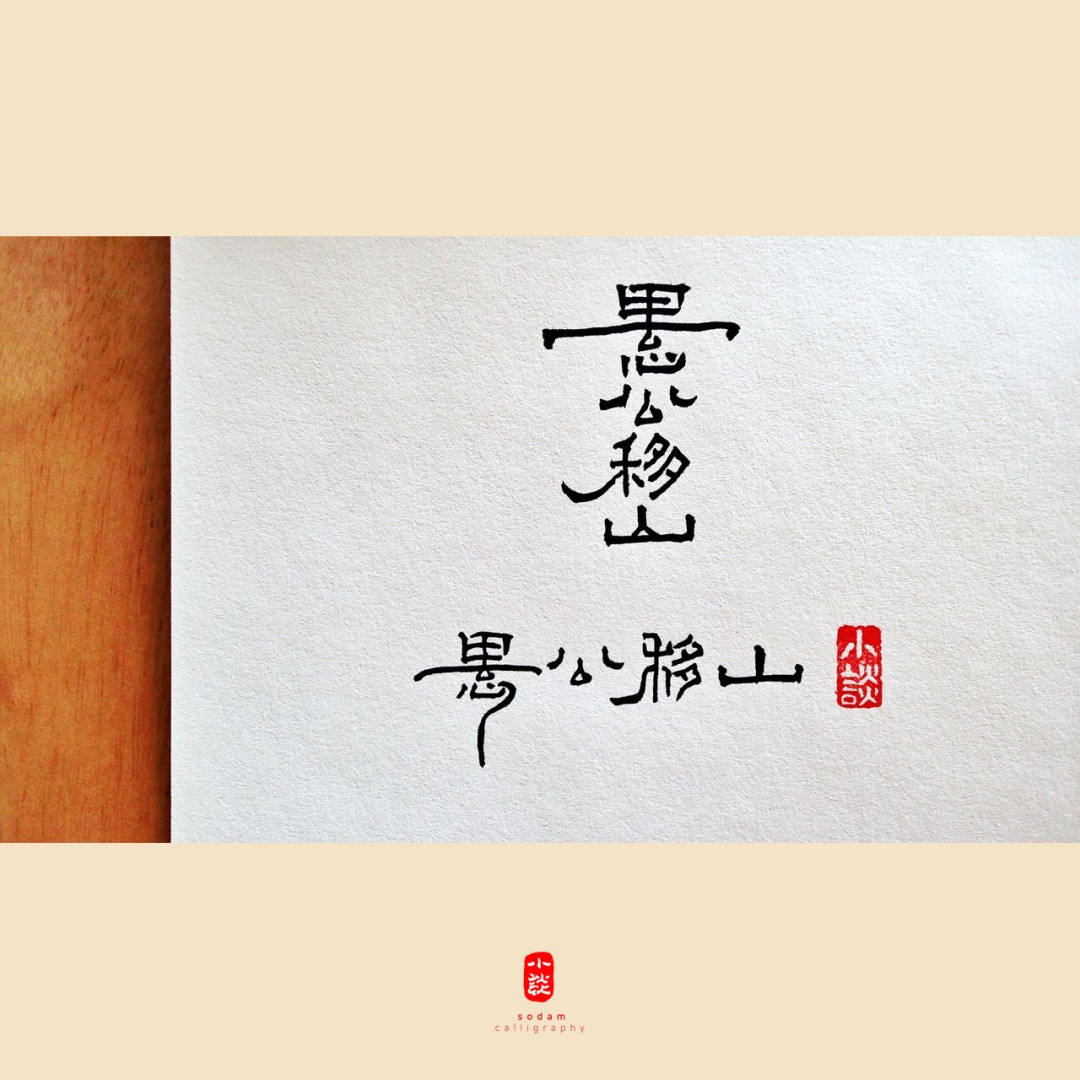 愚公移山
愚公移山
小談
小談
sodam
calligraphy